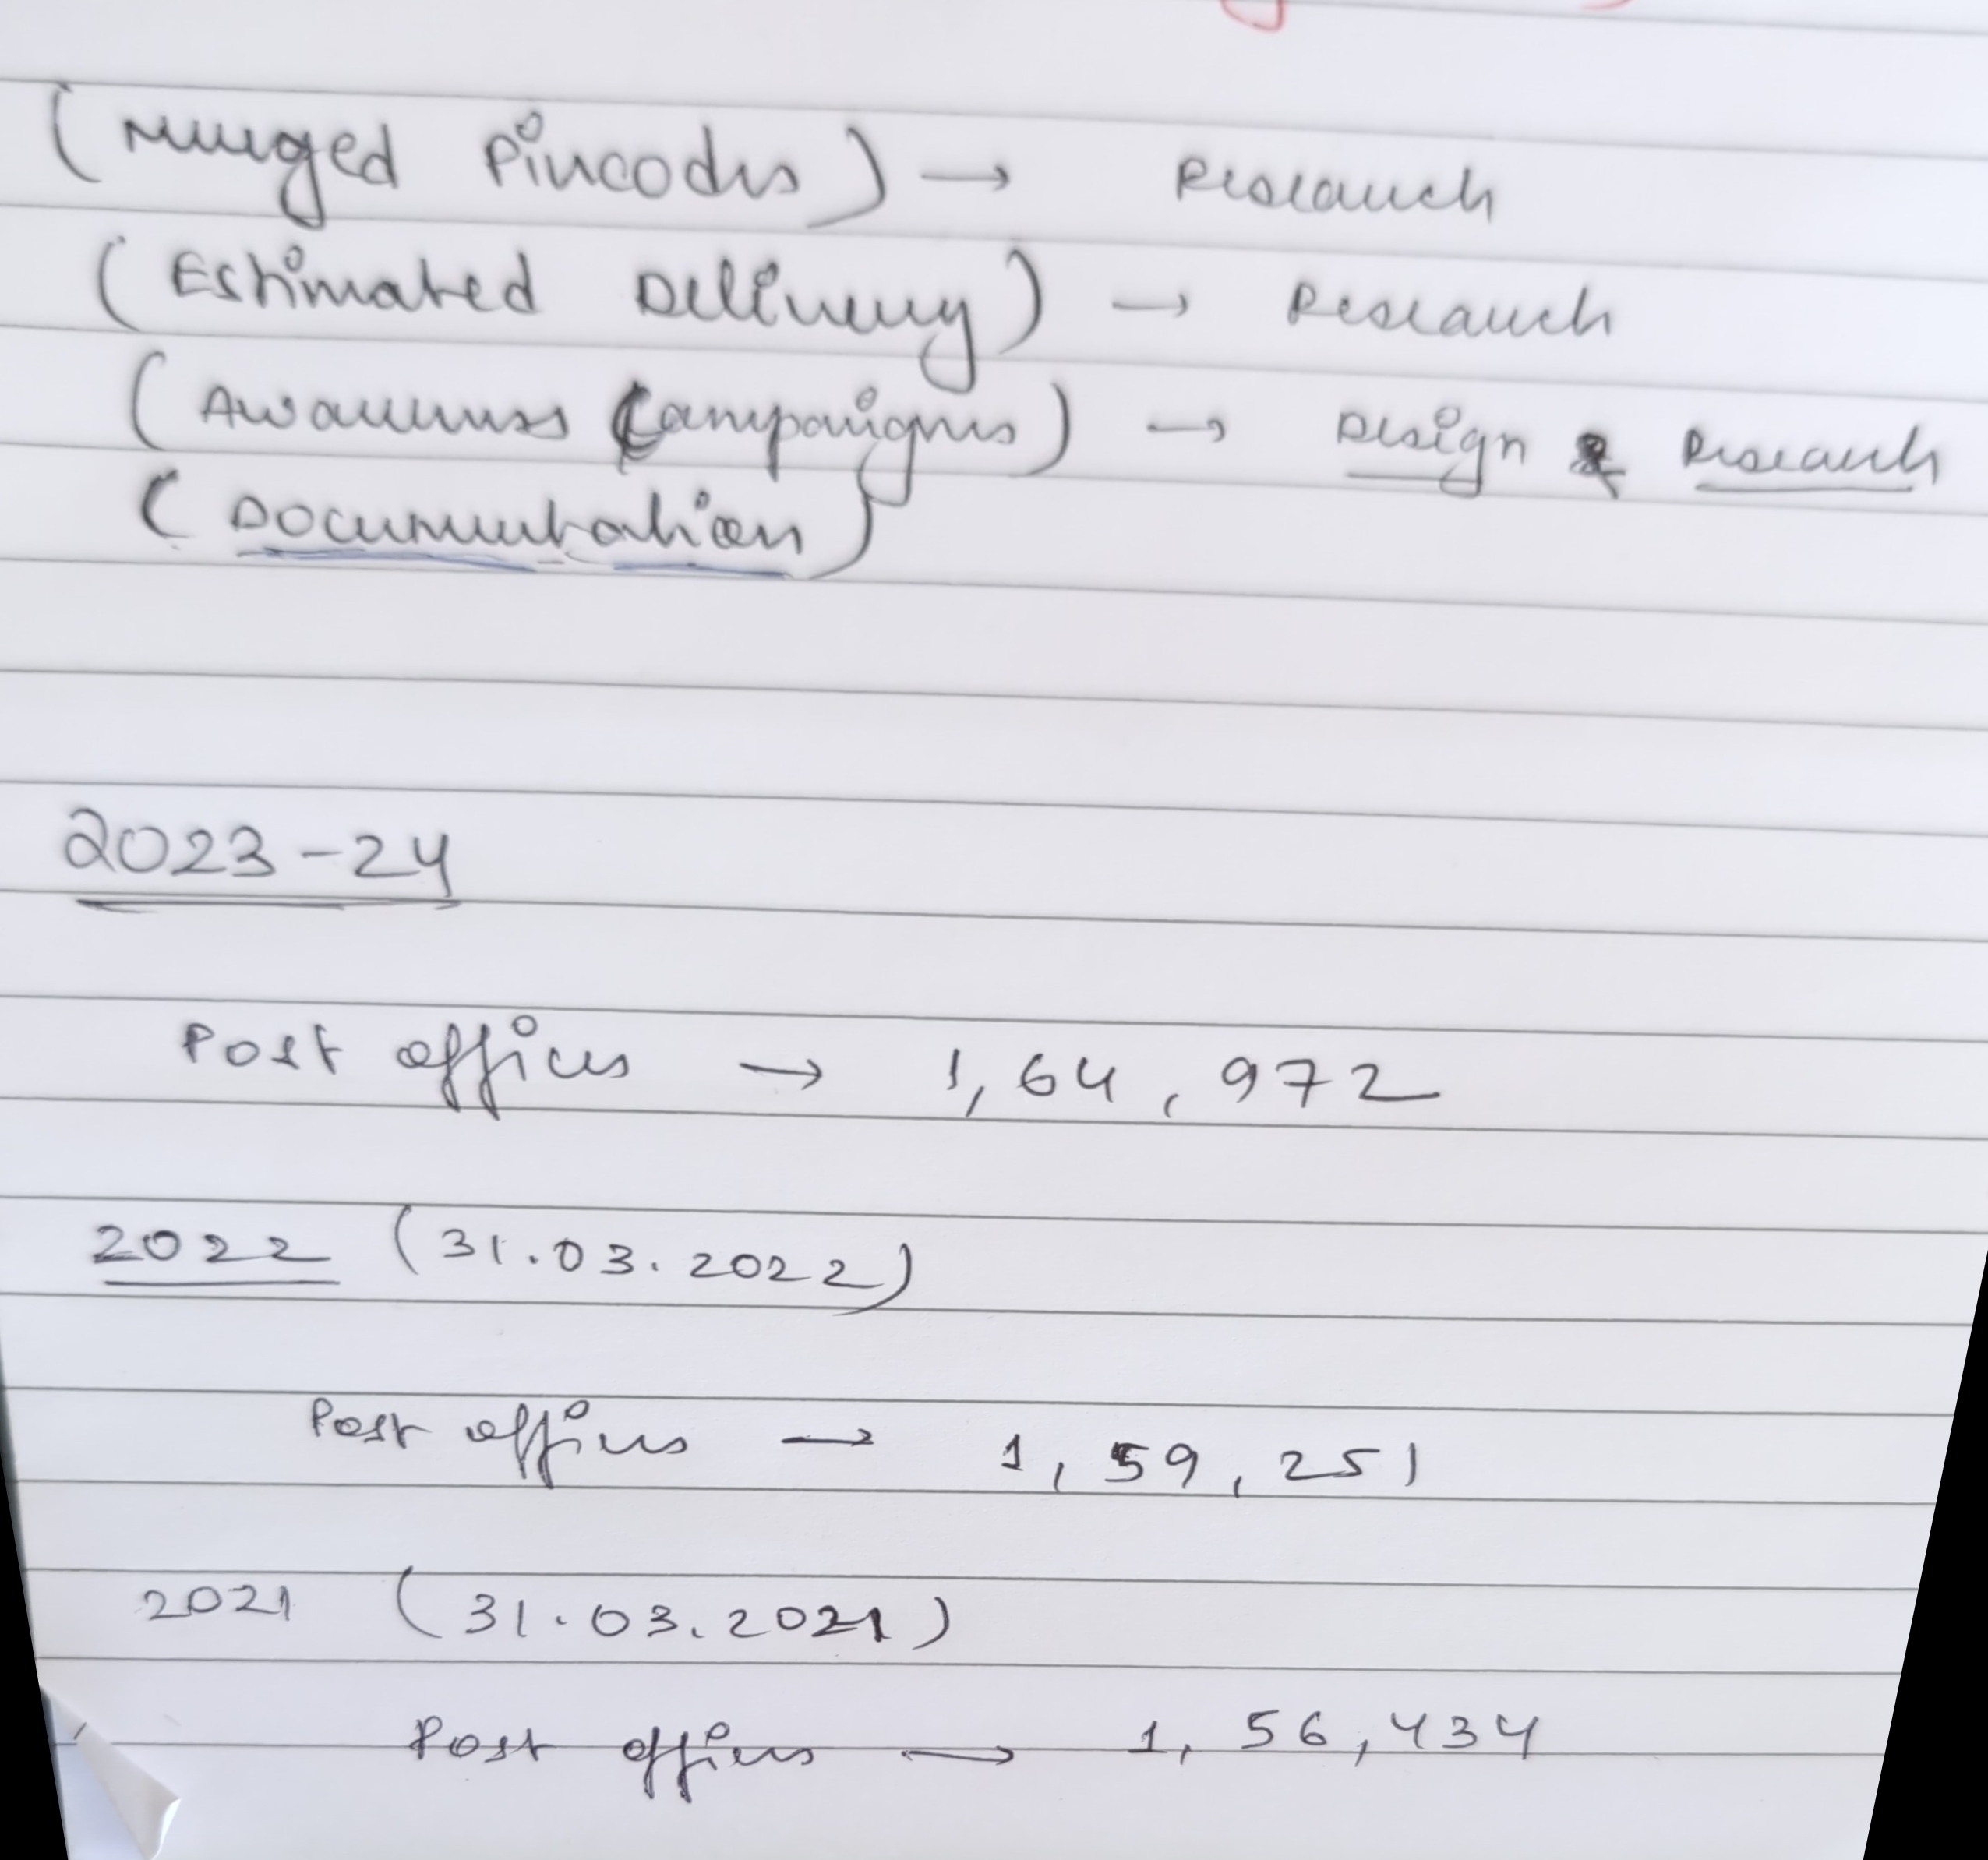 (Merged Pincodes) → Research
(Estimated Delivery) → Research
(Awareness Campaigns) → Design & Research
(Documentation)
2023-24
Post offices → 1,64,972
2022 (31.03.2022)
Post offices → 1,59,251
2021 (31.03.2021)
Post offices → 1,56,434